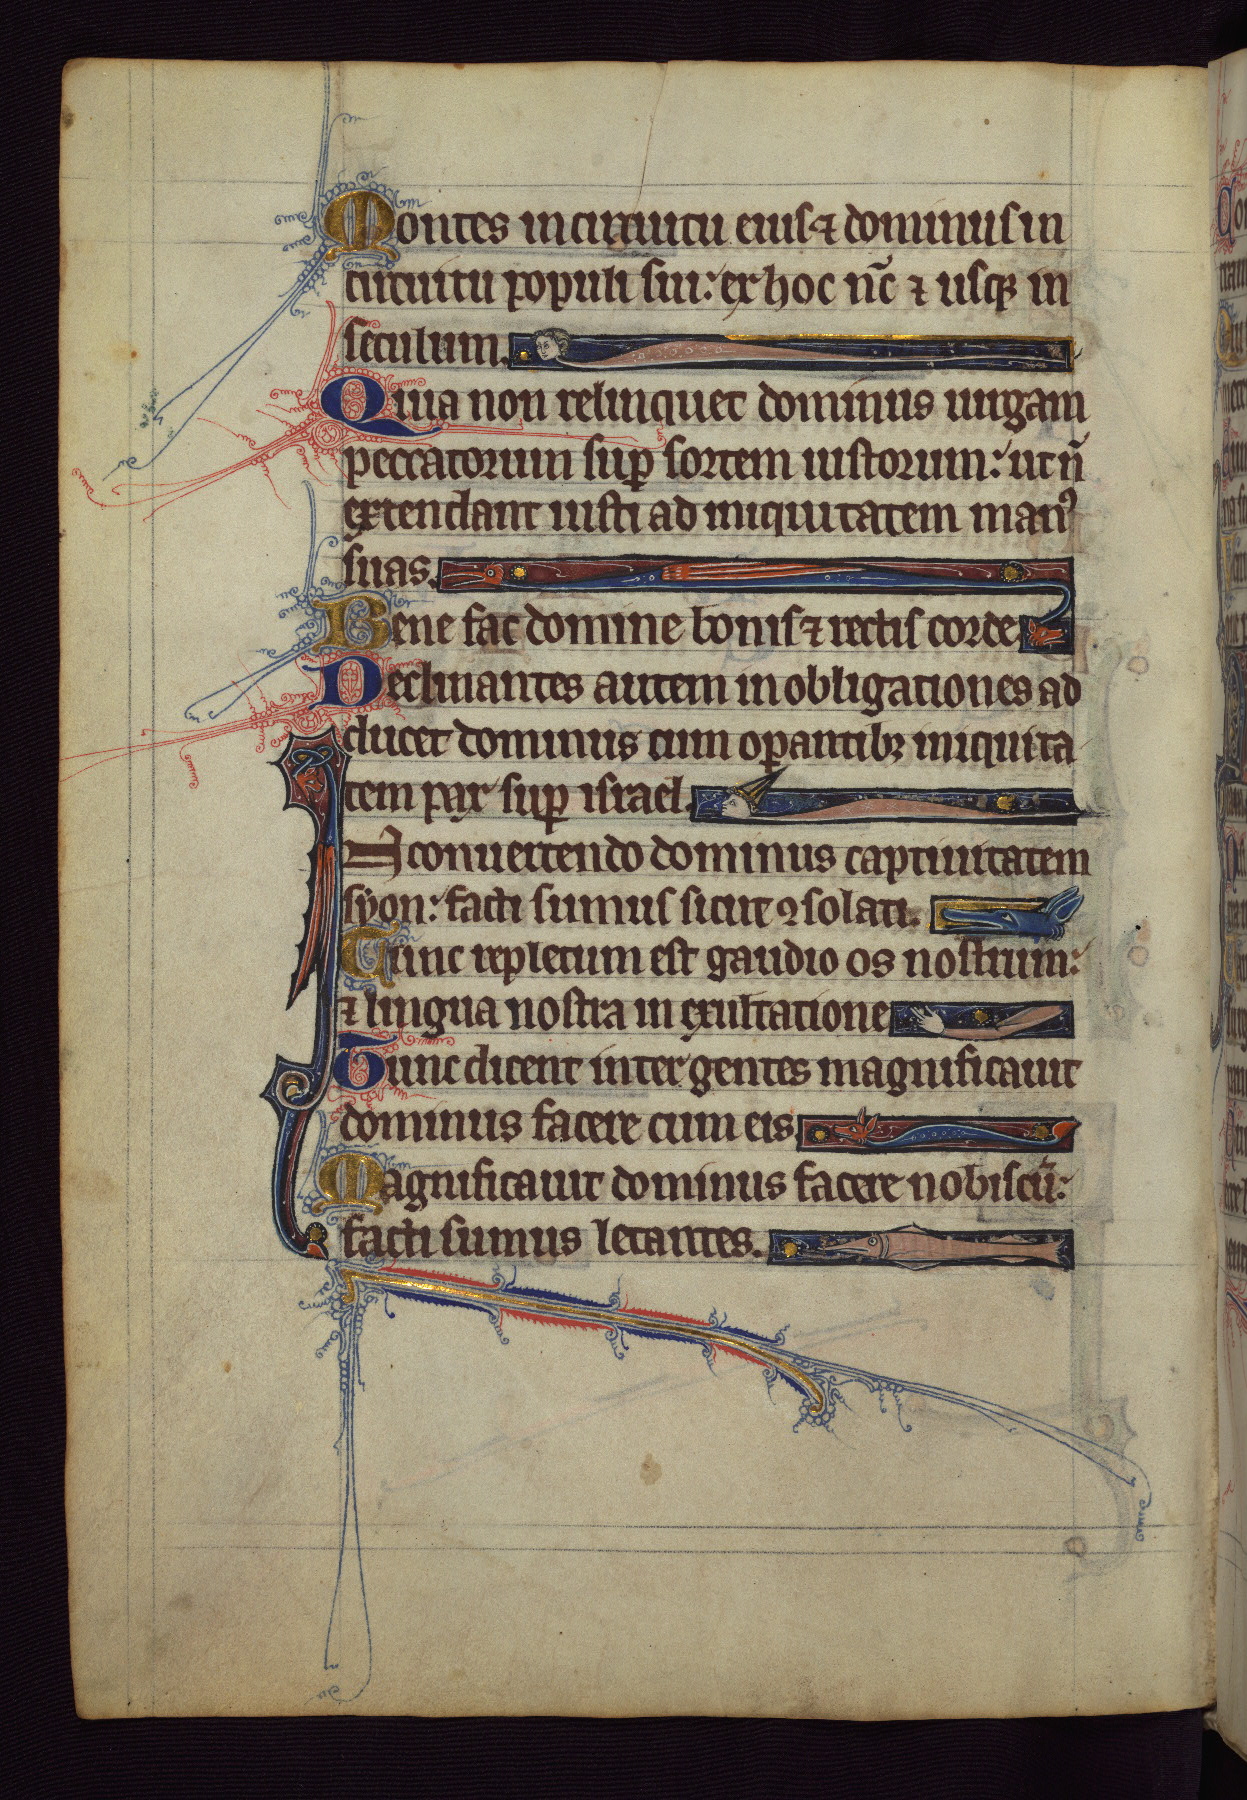 Montes in circuitu eius ⁊ dominus in
circuitu populi sui: ex hoc nc̄ ⁊ usq; in
seculum.
Quia non relinquet dominus uirgam
peccatorum sup̱ sortem iustorum: ut n̄
extendant iusti ad iniquitatem manꝰ
suas.
Bene fac domine bonis ⁊ rectis corde
Declinantes autem in obligationes ad
ducet dominus cum oꝑantibꝫ iniquita
tem pax suꝑ israel.
In conuertendo dominus captiuitatem
syon: facti sumus sicut ꝯsolati.
Tunc repletum est gaudio os nostrum:
⁊ lingua nostra in exultatione
Tunc dicent inter gentes magnificauit
dominus facere cum eis
Magnificauit dominus facere nobiscū:
facti sumus letantes.